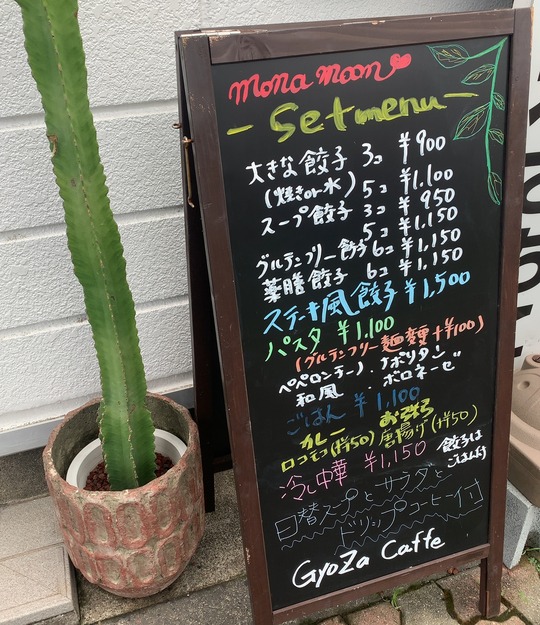 mona moon
- Set menu -
大きな餃子 3コ ¥900
(焼きor水) 5コ ¥1,100
スープ餃子 3コ ¥950
5コ ¥1,150
グルテンフリー餃子 6コ ¥1,150
薬膳餃子 6コ ¥1,150
ステーキ風餃子 ¥1,500
パスタ ¥1,100
(グルテンフリー麺変更+¥100)
ペペロンチーノ・ナポリタン
和風・ボロネーゼ
ごはん ¥1,100
カレー おろそろ
ロコモコ(+¥50) 唐揚げ(+¥50)
冷し中華 ¥1,150 餃子は
ごはん付
日替スープとサラダと
ドリップコーヒー付
GyoZa Caffe